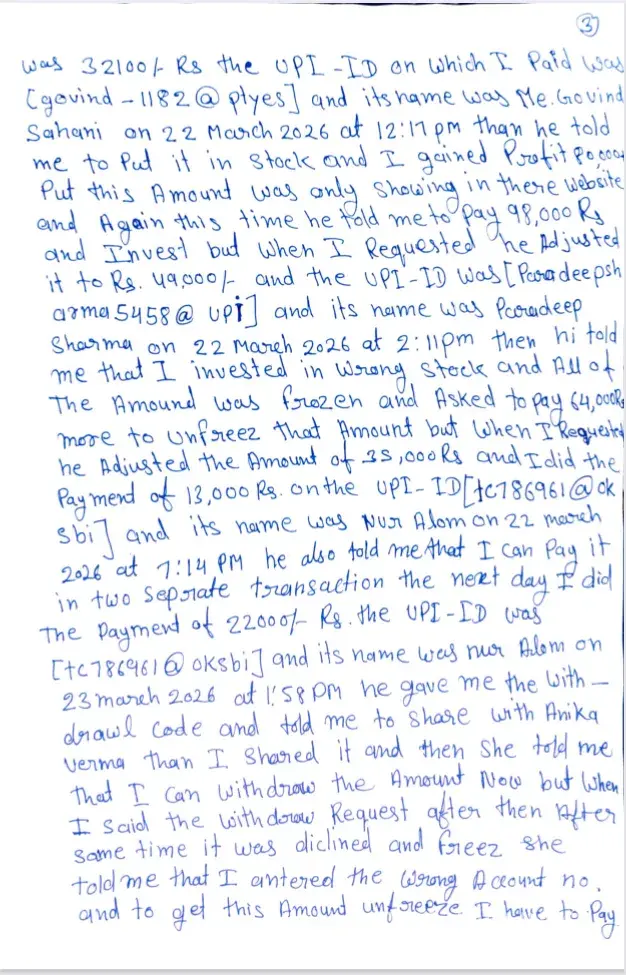 3
was 32100/- Rs the UPI-ID on which I Paid was
[govind-1182@ptyes] and its name was Me. Govind
Sahani on 22 March 2026 at 12:17 pm than he told
me to Put it in Stock and I gained Profit 80,000/
Put this Amount was only showing in there website
and Again this time he told me to pay 98,000 Rs
and Invest but when I Requested he Adjusted
it to Rs. 49,000/- and the UPI-ID was [Paradeepsh
arma5458@upi] and its name was Paradeep
Sharma on 22 March 2026 at 2:11pm then hi told
me that I invested in Wrong Stock and All of
The Amound was frozen and Asked to pay 64,000Rs
more to unfreez that Amount but when I Requested
he Adjusted the Amount of 35,000Rs and I did the
Payment of 13,000 Rs. on the UPI-ID[tc786961@ok
sbi] and its name was Nur Alom on 22 march
2026 at 7:14 PM he also told me that I can Pay it
in two seprate transaction the next day I did
The payment of 22000/- Rs. the UPI-ID was
[tc786961@oksbi] and its name was nur Alom on
23 march 2026 at 1:58 PM he gave me the With-
drawl code and told me to share with Anika
verma than I shared it and then she told me
that I can withdraw the Amount Now but when
I said the withdraw Request after then After
some time it was diclined and freez she
told me that I antered the wrong Account no.
and to get this Amount unfreeze I have to Pay